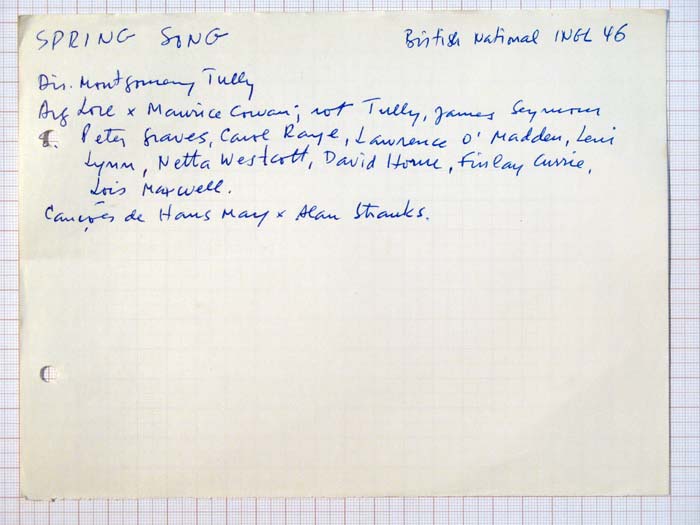 SPRING SONG British National INGL 46
Dir. Montgomery Tully
Arg Lore x Maurice Cowan; rot Tully, James Seymour
I. Peter Graves, Carol Raye, Lawrence O'Madden, Leni
Lynn, Netta Westcott, David Horne, Finlay Currie,
Lois Maxwell.
Canções de Hans May x Alan Stranks.